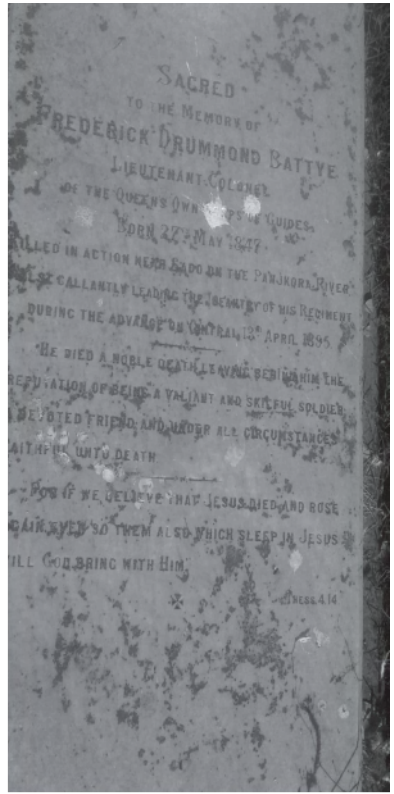 SACRED
TO THE MEMORY OF
FREDERICK DRUMMOND BATTYE
LIEUTENANT-COLONEL
OF THE QUEENS OWN CORPS OF GUIDES.
BORN 27TH MAY 1847.
KILLED IN ACTION NEAR SADO ON THE PANJKORA RIVER
GALLANTLY LEADING THE INFANTRY OF HIS REGIMENT
DURING THE ADVANCE ON CHITRAL, APRIL 1895
HE DIED A NOBLE DEATH LEAVING BEHIND HIM THE
REPUTATION OF BEING A VALIANT AND SKILFUL SOLDIER
A DEVOTED FRIEND AND UNDER ALL CIRCUMSTANCES
FAITHFUL UNTO DEATH
FOR IF WE BELIEVE THAT JESUS DIED AND ROSE
AGAIN EVEN SO THEM ALSO WHICH SLEEP IN JESUS
WILL GOD BRING WITH HIM.
THESS 4.14